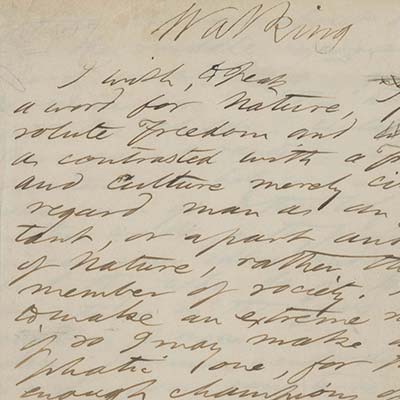 Walking
I wish to speak
a word for Nature,
solute Freedom and
as contrasted with a Fr
and culture merely ci
regard man as an
tant, or a part and
of Nature, rather th
member of society.
to make an extreme
if so I may make
phatic one, for
enough champions